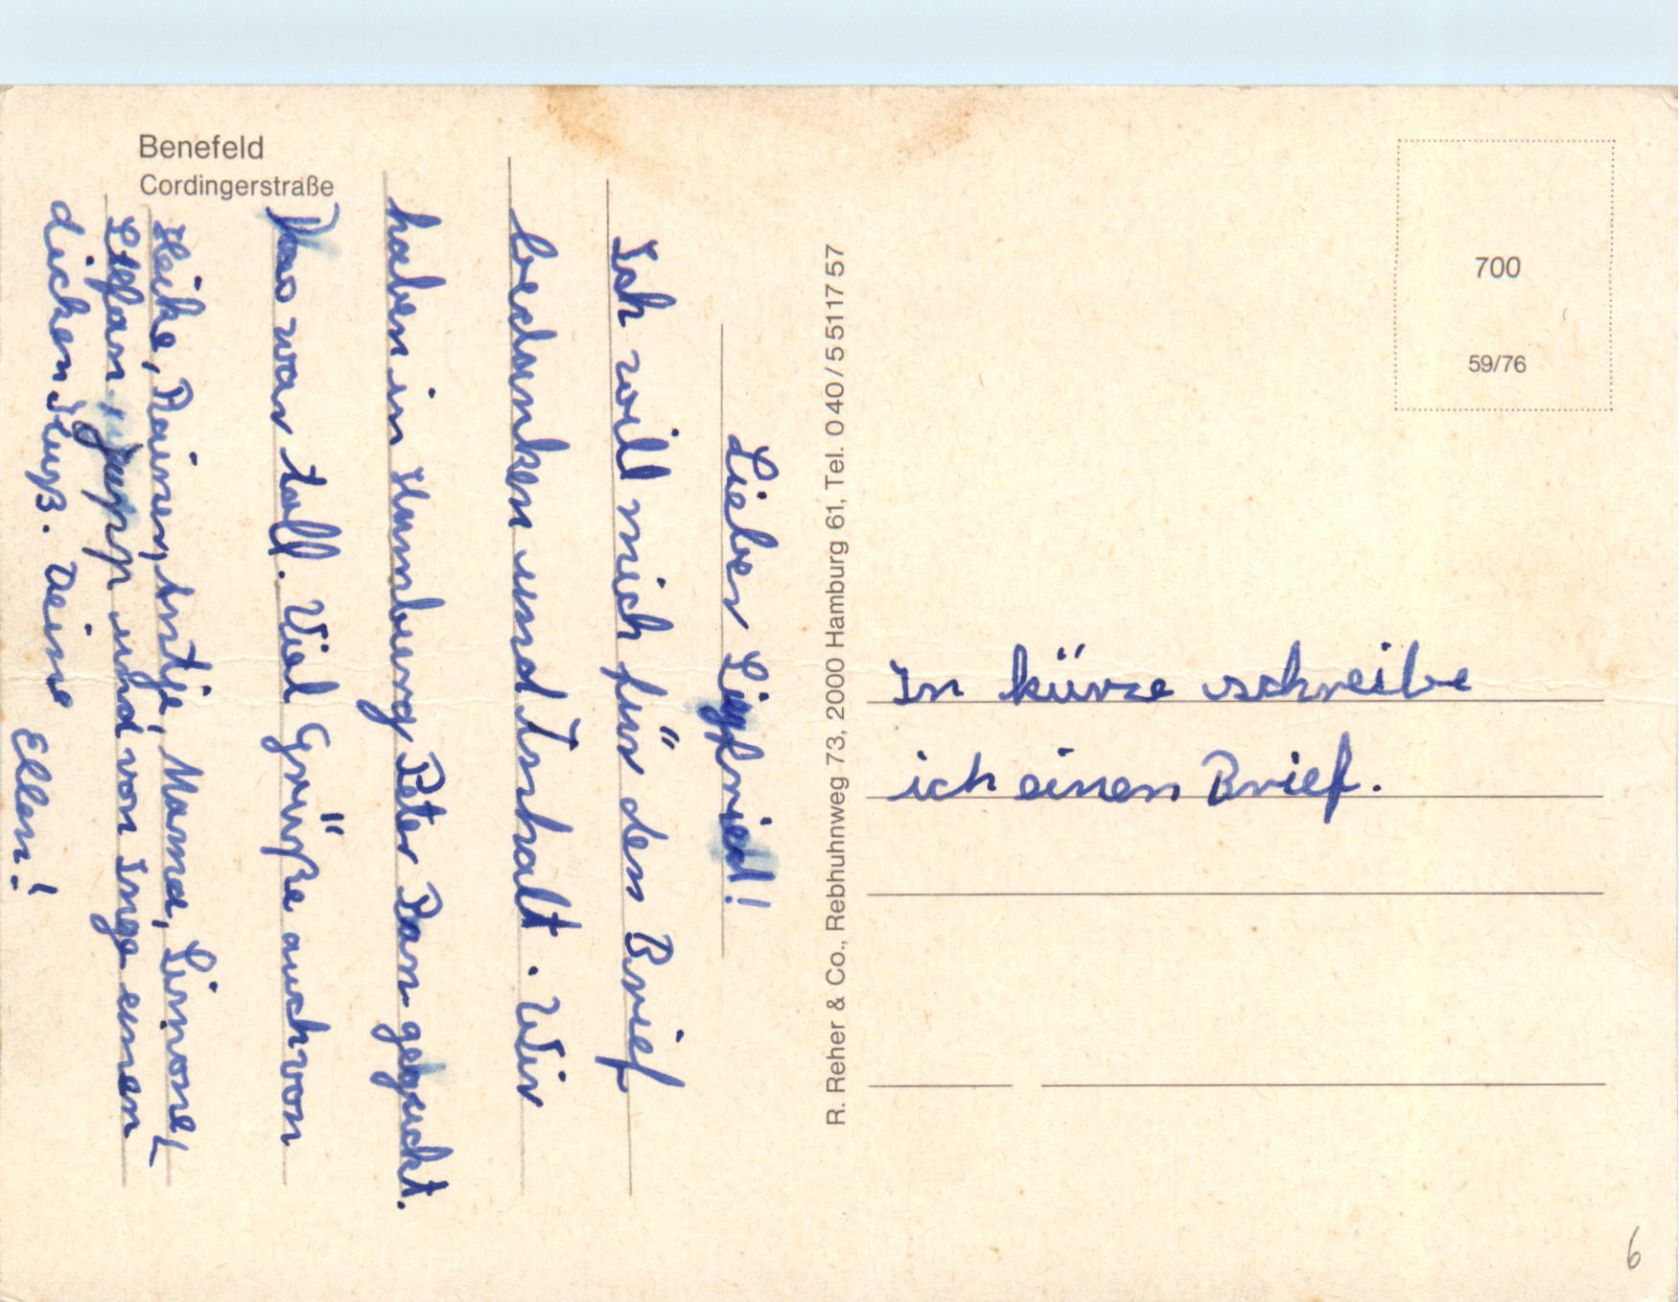 Benefeld
Cordingerstraße
Lieber Sigfried!
Ich will mich für den Brief
bedanken und Inhalt. Wir
haben in Hamburg Peter Pan geguckt.
Das war toll. Viel Grüße auch von
Heike, Rainer, Antje, Mama, Simone,
Stefan, Jupp und von Inge einen
dicken Kuß. Deine Ellen!
R. Reher & Co., Rebhuhnweg 73, 2000 Hamburg 61, Tel. 0 40 / 5 51 17 57
700
59/76
In kürze schreibe
ich einen Brief.
6